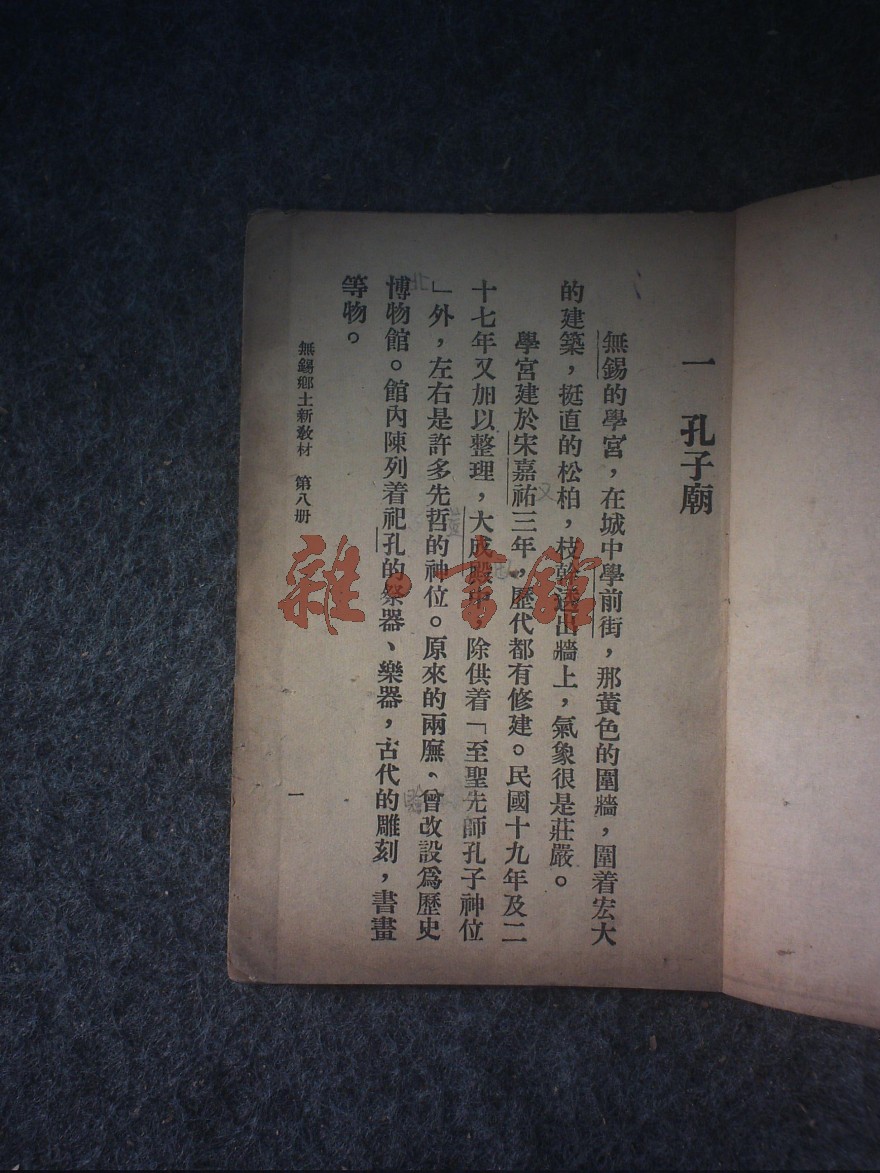 一　孔子廟
無錫的學宮，在城中學前街，那黃色的圍牆，圍着宏大
的建築，挺直的松柏，枝幹透出牆上，氣象很是莊嚴。
學宮建於宋嘉祐三年，歷代都有修建。民國十九年及二
十七年又加以整理，大成殿中，除供着「至聖先師孔子神位
」外，左右是許多先哲的神位。原來的兩廡、曾改設爲歷史
博物館。館內陳列着祀孔的祭器、樂器，古代的雕刻，書畫
等物。
無錫鄉土新教材　第八册
一
雜·書館